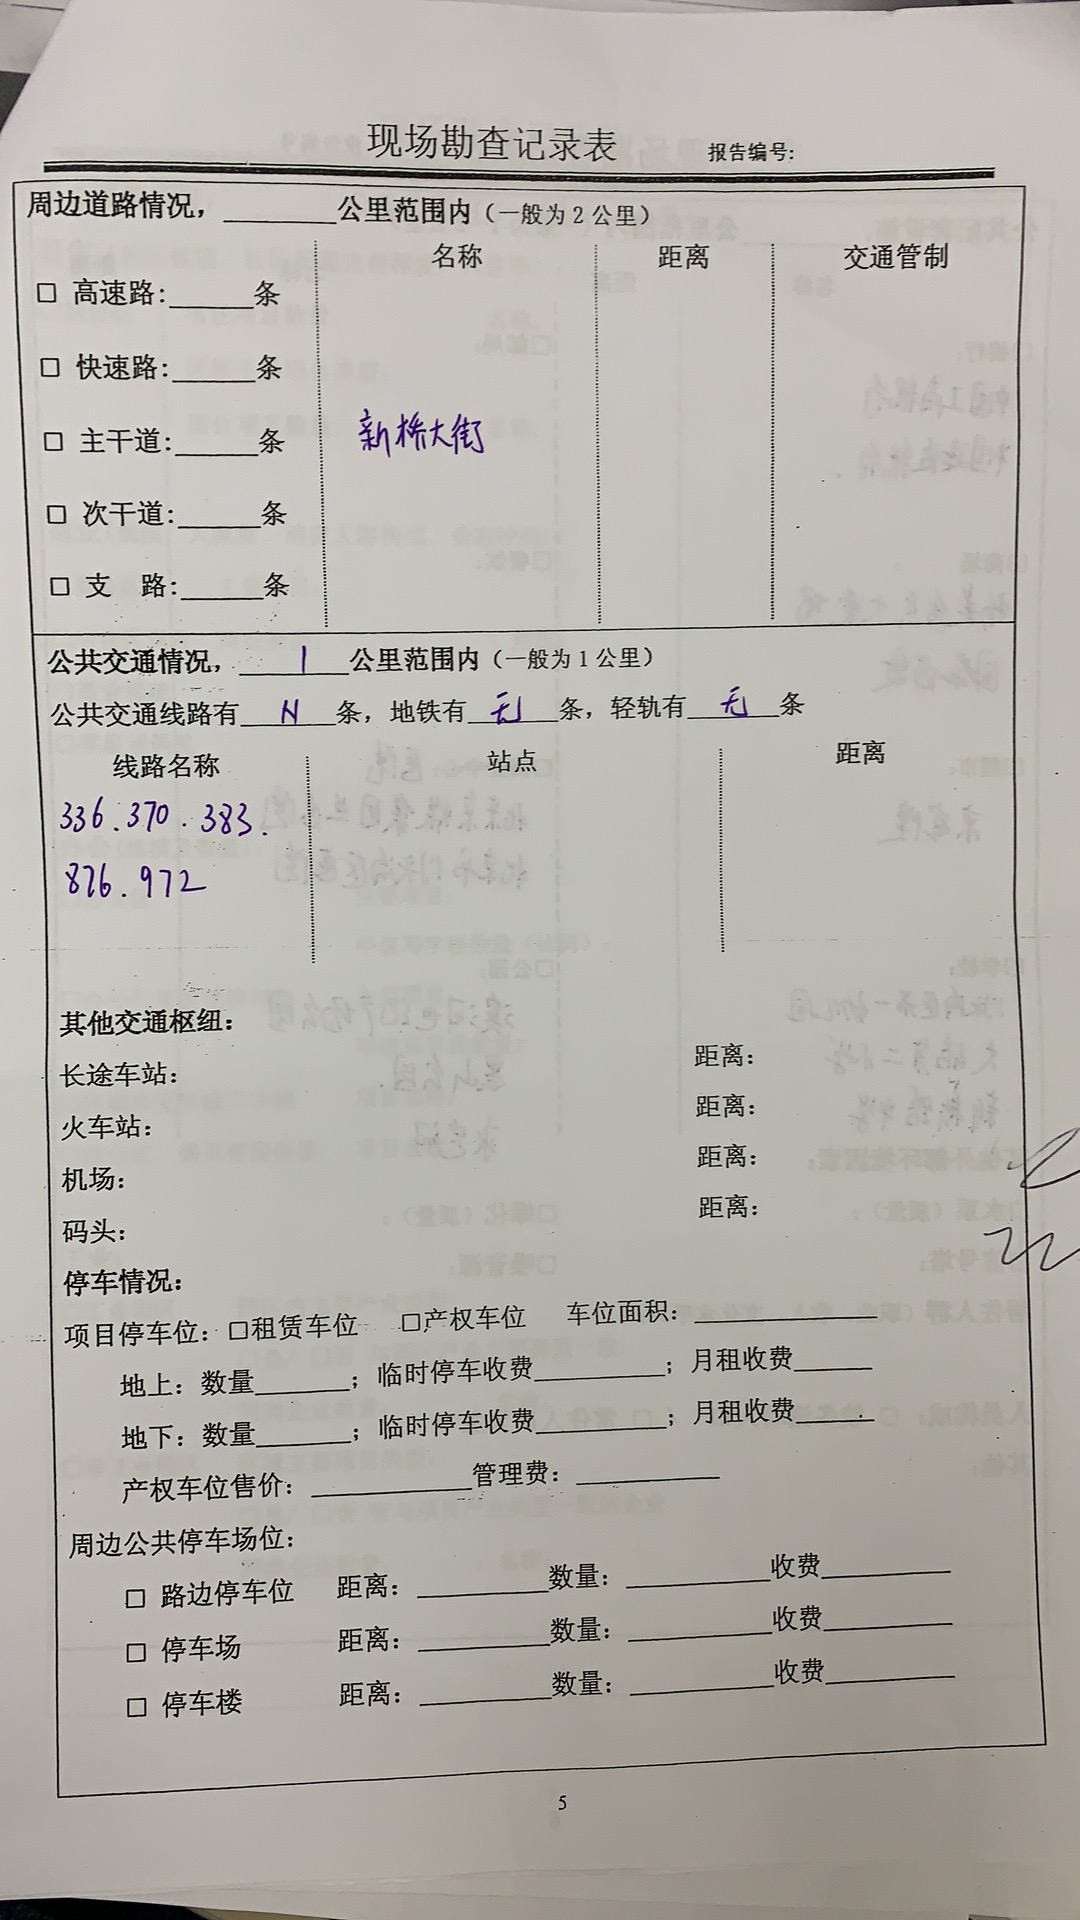 现场勘查记录表 报告编号:
周边道路情况，________公里范围内（一般为2公里）
名称 距离 交通管制
□ 高速路:______条
□ 快速路:______条
□ 主干道:______条 新桥大街
□ 次干道:______条
□ 支 路:______条
公共交通情况，1公里范围内（一般为1公里）
公共交通线路有 N 条，地铁有 无 条，轻轨有 无 条
线路名称 站点 距离
336.370.383.
876.972
其他交通枢纽：
长途车站： 距离：
火车站： 距离：
机场： 距离：
码头： 距离：
停车情况：
项目停车位：□租赁车位 □产权车位 车位面积：____________
地上：数量______；临时停车收费________；月租收费_____
地下：数量______；临时停车收费________；月租收费_____
产权车位售价：__________管理费：_________
周边公共停车场位：
□ 路边停车位 距离：________数量：________收费________
□ 停车场 距离：________数量：________收费________
□ 停车楼 距离：________数量：________收费________
5